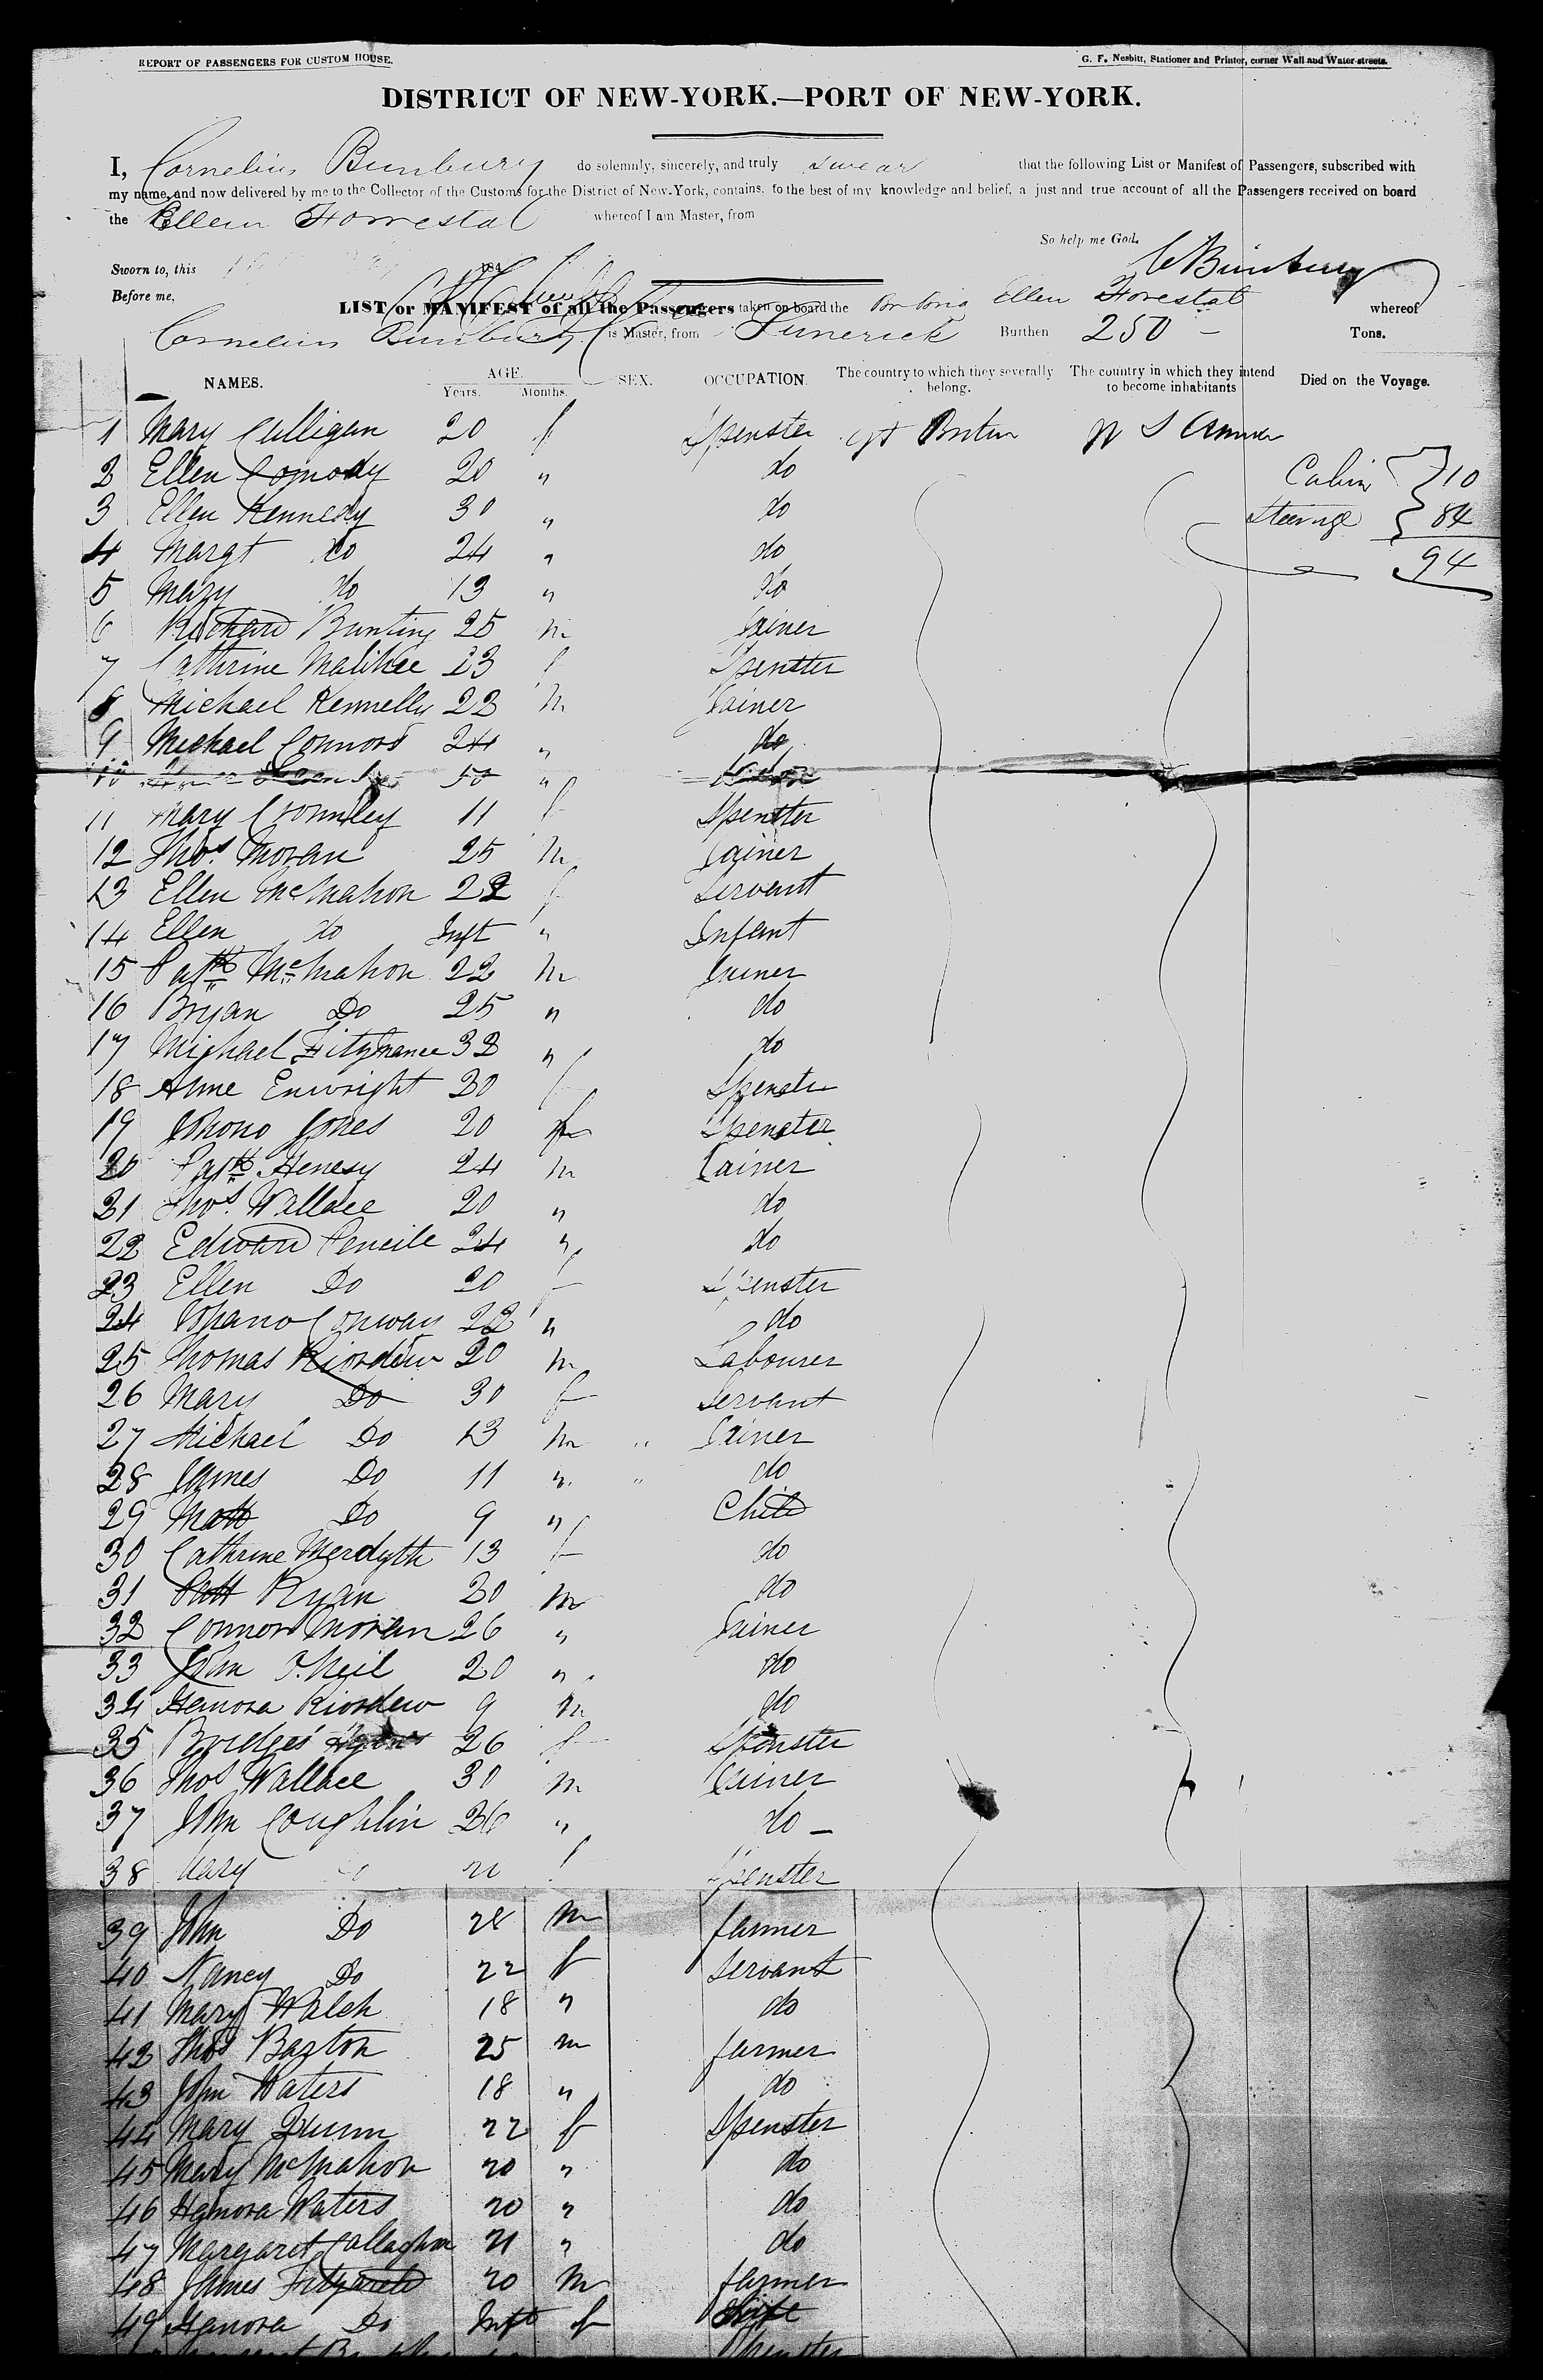 REPORT OF PASSENGERS FOR CUSTOM HOUSE.
G. F. Nesbitt, Stationer and Printer, corner Wall and Water-streets.
DISTRICT OF NEW-YORK.—PORT OF NEW-YORK.
I, Cornelius Bunbury do solemnly, sincerely, and truly swear that the following List or Manifest of Passengers, subscribed with
my name, and now delivered by me to the Collector of the Customs for the District of New-York, contains, to the best of my knowledge and belief, a just and true account of all the Passengers received on board
the Ellen Forrestal whereof I am Master, from
So help me God.
Sworn to, this 184
C Bunbury
Before me,
LIST or MANIFEST of all the Passengers taken on board the Br Brig Ellen Forestal whereof
Cornelius Bunbury is Master, from Limerick Burthen 250 - Tons.
NAMES. AGE. Years. Months. SEX. OCCUPATION. The country to which they severally belong. The country in which they intend to become inhabitants Died on the Voyage.
1 Mary Culligan 20 f Spenster Gt Britn N S Amer
2 Ellen Comody 20 " do Cabin 10
3 Ellen Kennedy 30 " do Steerage 84
4 Margt do 24 " do 94
5 Mary do 13 " do
6 Richard Bunting 25 m farmer
7 Cathrine 23 f Spenster
8 Michael Kennelly 22 m farmer
9 Michael Connors 24 " do
10 50 "
11 Mary 11 f Spenster
12 Thos. Moran 25 m farmer
13 Ellen McMahon 22 f Servant
14 Ellen do Inft " Infant
15 Patk McMahon 22 m farmer
16 Bryan Do 25 " do
17 Michael 32 " do
18 Anne Enwright 20 f Spenster
19 Johano Jones 20 f Spenster
20 Patk Henesy 24 m farmer
21 Thos. Wallace 20 " do
22 Edward 24 " do
23 Ellen Do 20 f Spenster
24 Johano Conway 22 " do
25 Thomas Riorden 20 m Labourer
26 Mary Do 30 f Servant
27 Michael Do 13 m farmer
28 James Do 11 " do
29 Matt Do 9 " Child
30 Cathrine Merdyth 13 f do
31 Patt Ryan 20 m do
32 Connor Moran 26 " farmer
33 John O.Neil 20 " do
34 Hanora Riorden 9 m do
35 26 f Spenster
36 Thos Wallace 30 m farmer
37 John Coughlin 26 " do -
38 Mary f Spenster
39 John Do 28 m farmer
40 Nancy Do 22 f Servant
41 Mary Walch 18 " do
42 Thos Barton 25 m farmer
43 John Waters 18 " do
44 Mary Quinn 22 f Spenster
45 Mary McMahon 20 " do
46 Hanora Waters 20 " do
47 Margaret Callaghan 21 " do
48 James Fitzgerald 20 m farmer
49 Hanora Do Inft f
Spenster